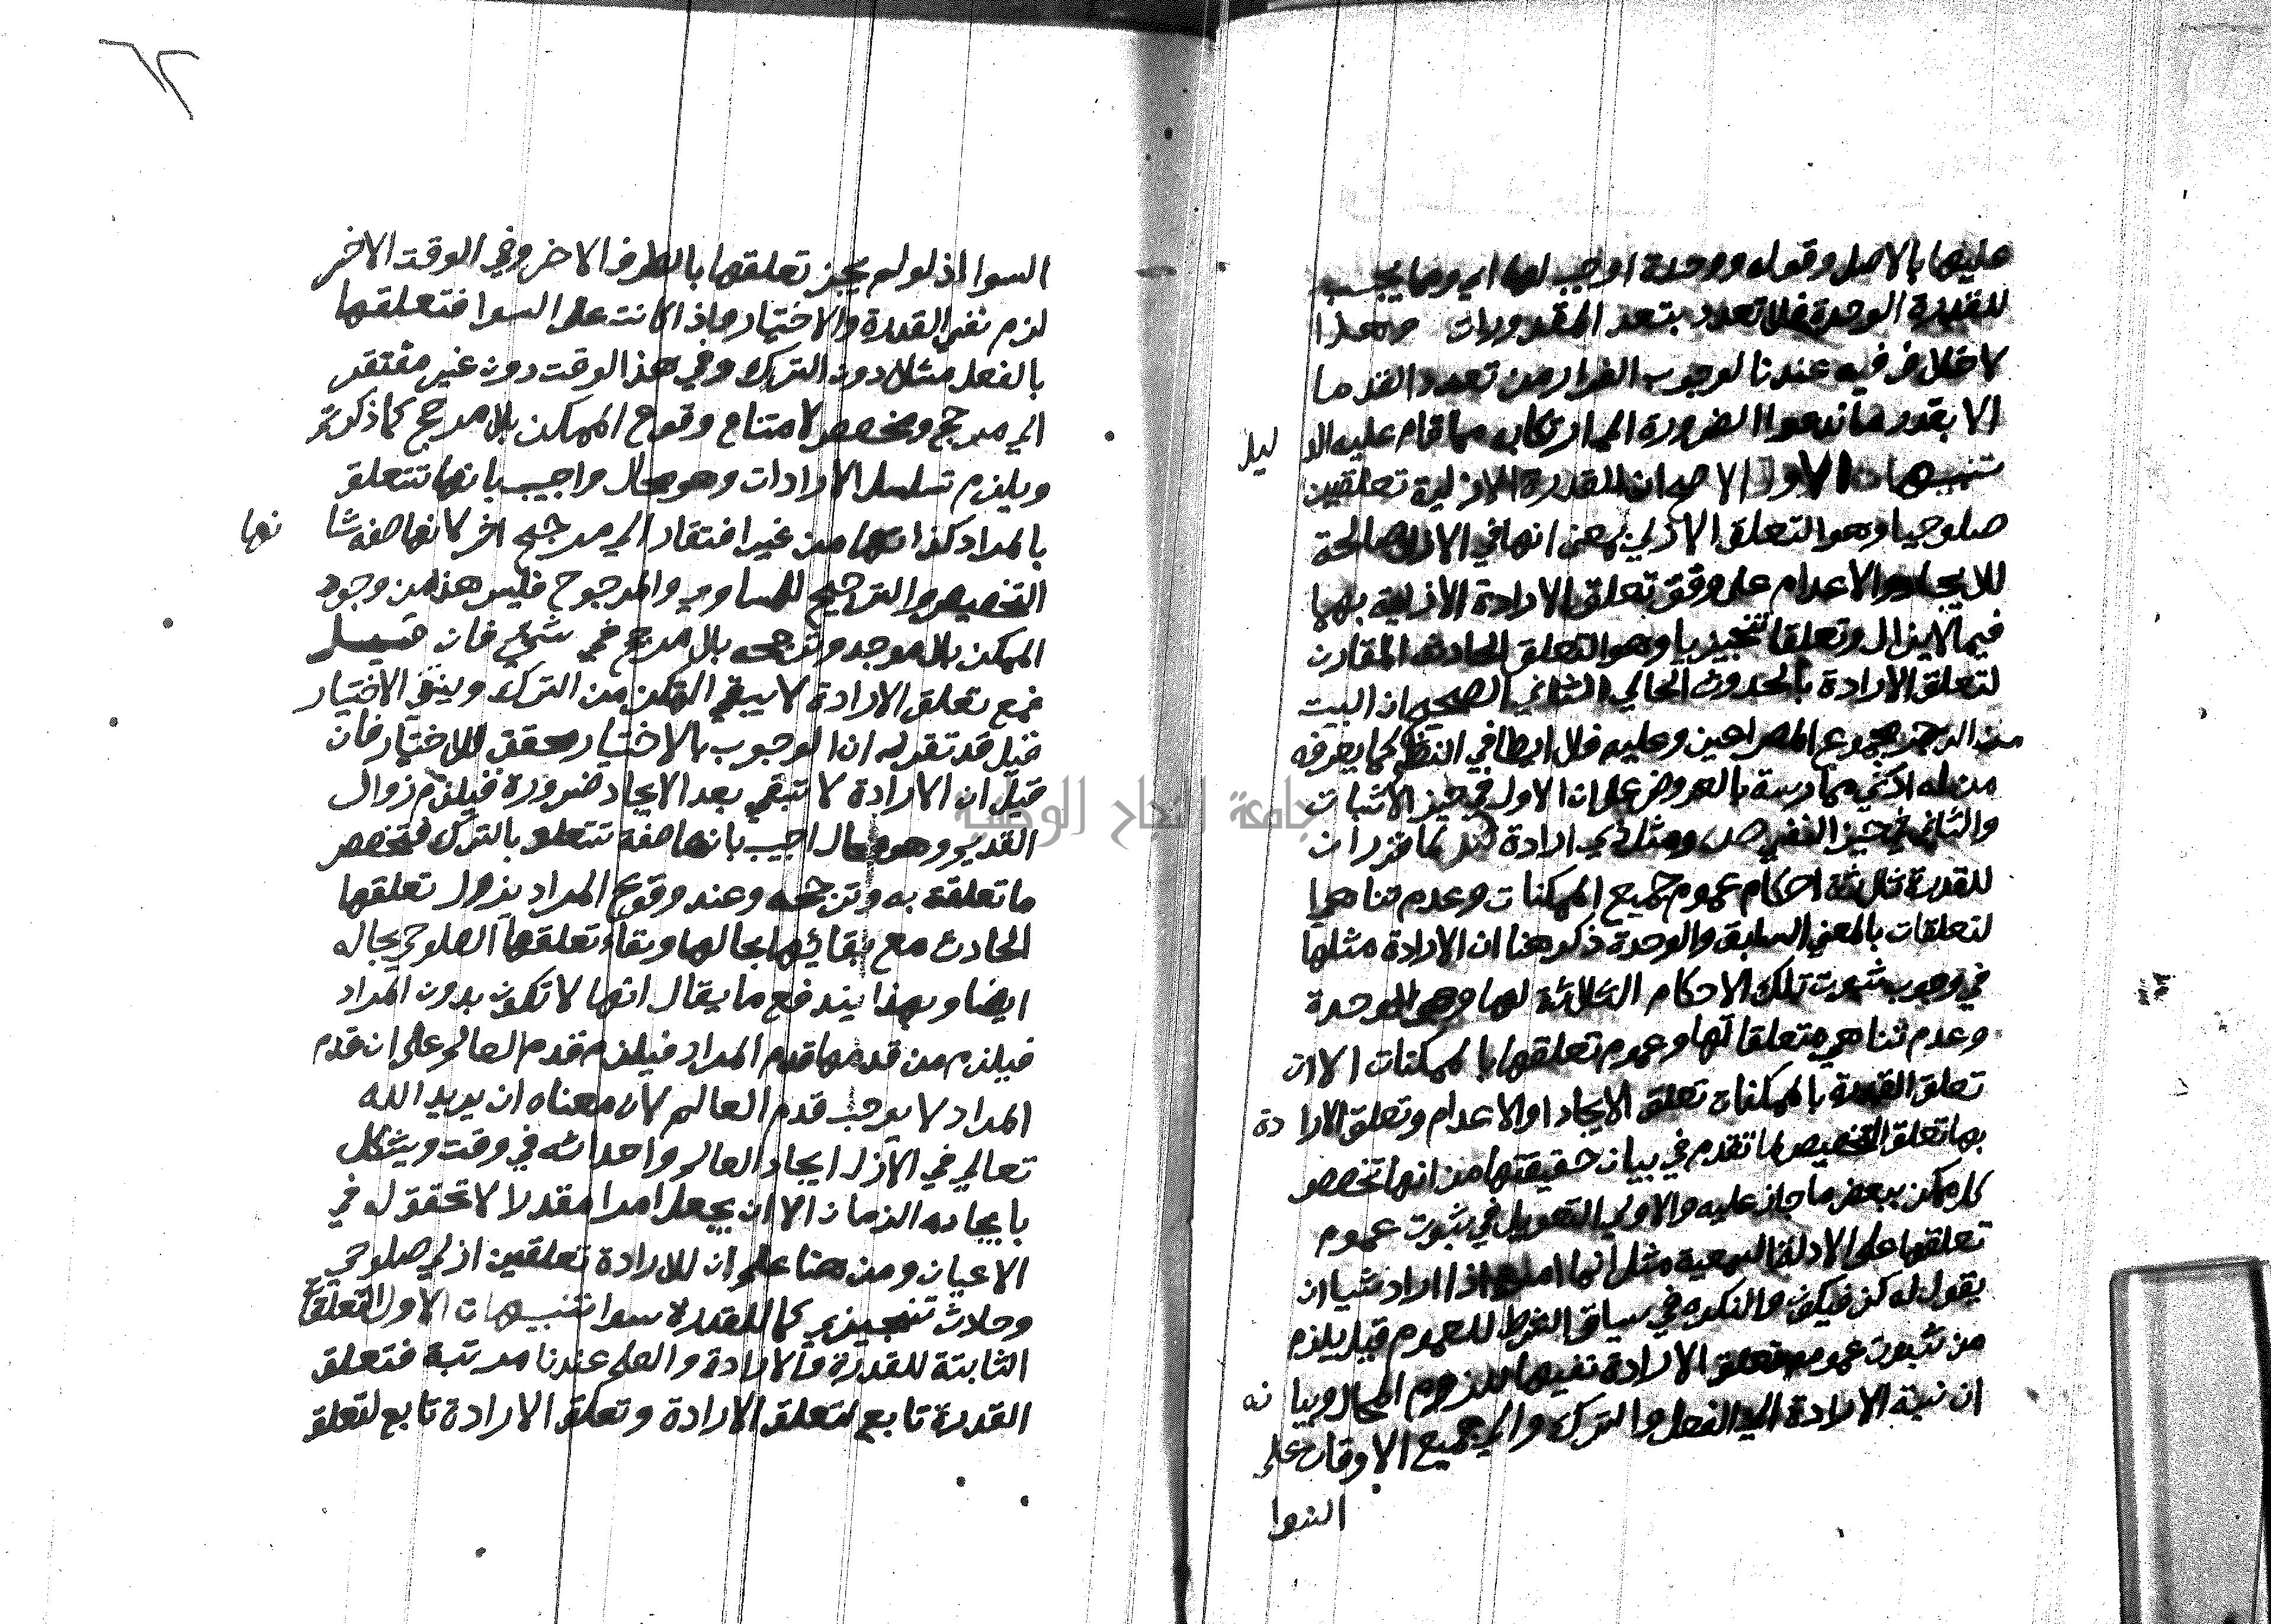 عليها بالاصل وقوله ووحدة اوجب لها اي ومما يجب
للقدرة الوحدة فلا تعدد بتعد المقدورات وهذا
لا خلاف فيه عندنا لوجوب الفرار من تعدد القدما
الا بقدر ما تدعوا الضرورة الى ارتكابه مما قام عليه الدليل
تنبيهات الاول الاصح ان للقدرة الازلية تعلقين
صلوحيا وهو التعلق الازلي بمعنى انها في الازل صالحة
للايجاد والاعدام على وفق تعلق الارادة الازلية بهما
فيما لايزال وتعلقا تنجيزيا وهو التعلق الحادث المقارن
لتعلق الارادة بالحدوث الحالي الثاني الصحيح ان البيت
من الرجز مجموع المصراعين وعليه فلا ايطا في النظم كما يعرفه
من له ادنى ممارسة بالعروض على ان الاول في حيز الاثبات
والثاني في حيز النفي ص ومثل ذي ارادة ش لما قرر ان
للقدرة ثلاثة احكام عموم جميع الممكنات وعدم تناهي ا
لتعلقات بالمعنى السابق والوحدة ذكر هنا ان الارادة مثلها
في وجوب ثبوت تلك الاحكام الثلاثة لها وهو الوحدة
وعدم تناهي متعلقاتها وعموم تعلقها بالممكنات الا ان
تعلق القدرة بالممكنات تعلق الايجاد او الاعدام وتعلق الارادة
بها تعلق التخصيص لما تقدم في بيان حقيقتها من انها تخصص
كل ممكن ببعض ما جاز عليه والاولى التعويل في ثبوت عموم
تعلقها على الادلة السمعية مثل انما امره اذا اراد شيا ان
يقول له كن فيكون والنكره في سياق الشرط للعموم قيل يلزم
من ثبوت عموم تعلق الارادة نفيها للزوم المحال وبيانه
ان نسبة الارادة الى الفعل والترك والى جميع الاوقات على
السوا
٦٢
السوا اذ لو لم يجز تعلقها بالطرف الاخر وفي الوقت الاخر
لزم نفي القدرة والاختيار واذا كانت على السوا فتعلقها
بالفعل مثلا دون الترك وفي هذا الوقت دون غير مفتقر
الى مرجح ومخصص لامتناع وقوع الممكن بلا مرجح كما ذكرتم
ويلزم تسلسل الارادات وهو محال واجيب بانها تتعلق
بالمراد لذاتها من غير افتقار الى مرجح اخر لانها صفة شانها
التخصيص والترجيح للمساوي والمرجوح فليس هذا من وجود
الممكن بلا موجد وترجحه بلا مرجح في شيء فان قيل
فمع تعلق الارادة لا يبقى التمكن من الترك وينتفي الاختيار
قيل قد تقرر ان الوجوب بالاختيار محقق للاختيار فان
قيل ان الارادة لا تبقى بعد الايجاد ضرورة فيلزم زوال
القديم وهو محال اجيب بانها صفة تتعلق بالترك فتخصص
ما تعلقة به وترجحه وعند وقوع المراد يزول تعلقها
الحادث مع بقائها بحالها وبقاء تعلقها الصلوحي بحاله
ايضا وبهذا يندفع ما يقال انها لا تكون بدون المراد
فيلزم من قدمها قدم المراد فيلزم قدم العالم على ان قدم
المراد لا يوجب قدم العالم لان معناه ان يريد الله
تعالى في الازل ايجاد العالم واحداثه في وقت ويشكل
بايجاده الزمان الا ان يجعل امرا مقدرا لا تحقق له في
الاعيان ومن هنا علم ان للارادة تعلقين ازلي صلوحي
وحادث تنجيزي كما للقدرة سوا تنبيهات الاول التعلقات
الثابتة للقدرة والارادة والعلم عندنا مرتبة فتعلق
القدرة تابع لتعلق الارادة وتعلق الارادة تابع لتعلق
جامعة النجاح الوطنية